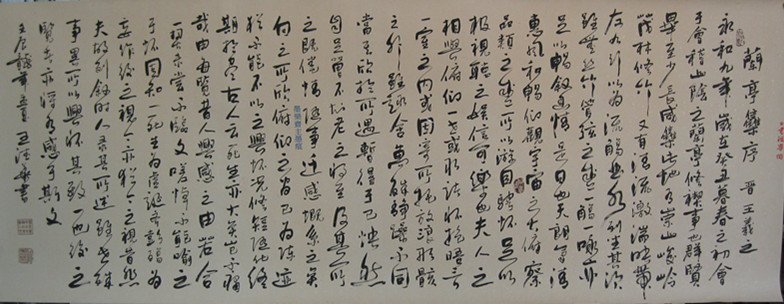 蘭亭集序 晉王羲之
永和九年歲在癸丑暮春之初會
于會稽山陰之蘭亭修禊事也群賢
畢至少長咸集此地有崇山峻嶺
茂林修竹又有清流激湍映帶
左右引以為流觴曲水列坐其次
雖無絲竹管弦之盛一觴一詠亦
足以暢敘幽情是日也天朗氣清
惠風和暢仰觀宇宙之大俯察
品類之盛所以游目騁懷足以
極視聽之娛信可樂也夫人之
相與俯仰一世或取諸懷抱晤言
一室之內或因寄所托放浪形骸
之外雖趣舍萬殊靜躁不同
當其欣於所遇暫得于己怏然
自足曾不知老之將至及其所
之既倦情隨事遷感慨系之矣
向之所欣俯仰之間已為陳跡
猶不能不以之興懷況修短隨化終
期於盡古人云死生亦大矣豈不痛
哉每覽昔人興感之由若合
一契未嘗不臨文嗟悼不能喻之
于懷固知一死生為虛誕齊彭殤為
妄作後之視今亦猶今之視昔悲
夫故列敘時人錄其所述雖世殊
事異所以興懷其致一也後之
覽者亦將有感于斯文